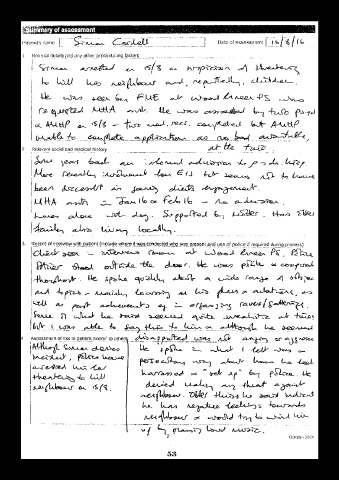 Summary of assessment
Patient's name Simon Cordell Date of assessment 16/8/16
1 Referral details and any other precipitating factors
Simon arrested on 15/8 on suspicion of threatening
to kill his neighbour and, reportedly, children.
He was seen by FME at Wood Green PS who
requested MHA assts. He was assessed by two
& AMHP on 15/8 - two med. recs. completed but AMHP
unable to complete application as no bed available
at the time.
2 Relevant social and medical history
Some years back an informal admission to
More recently involvement from EIS but seems not to have
been successful in gaining client's engagement.
MHA assts in Jan 16 & Feb 16 - no admission.
Lives alone with dog. Supported by Mother. Has other
family also living locally.
3 Record of interview with patient (include where it was conducted who was present and use of police if required during process)
Client seen in interview room at Wood Green PS. Police
Officer stood outside the door. He was polite &
throughout. He spoke quickly about a wide range of
and topics - mainly focusing on his plans & as
well as past achievements eg in organising raves/
Some of what he said seemed quite unrealistic at times
but I was able to say this to him & although he seemed
disappointed was not angry or aggressive
4 Assessment of risk to patient and/or to others
Although Simon denies
incident, Police have
arrested him for
threatening to kill
neighbour on 15/8.
He spoke in what I felt was a
persecutory way about how he had
harrassed & "set up" by police. He
denied making any threat against
neighbour. Other things he said indicate
he has negative feelings towards
neighbour & would try to wind him
up by playing loud music.
53